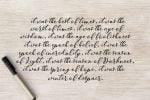 it was the best of times, it was the
worst of times, it was the age of
wisdom, it was the age of foolishness
it was the epoch of belief, it was the
epoch of incredulity, it was the season
of Light, it was the season of Darkness,
it was the spring of hope, it was the
winter of despair.